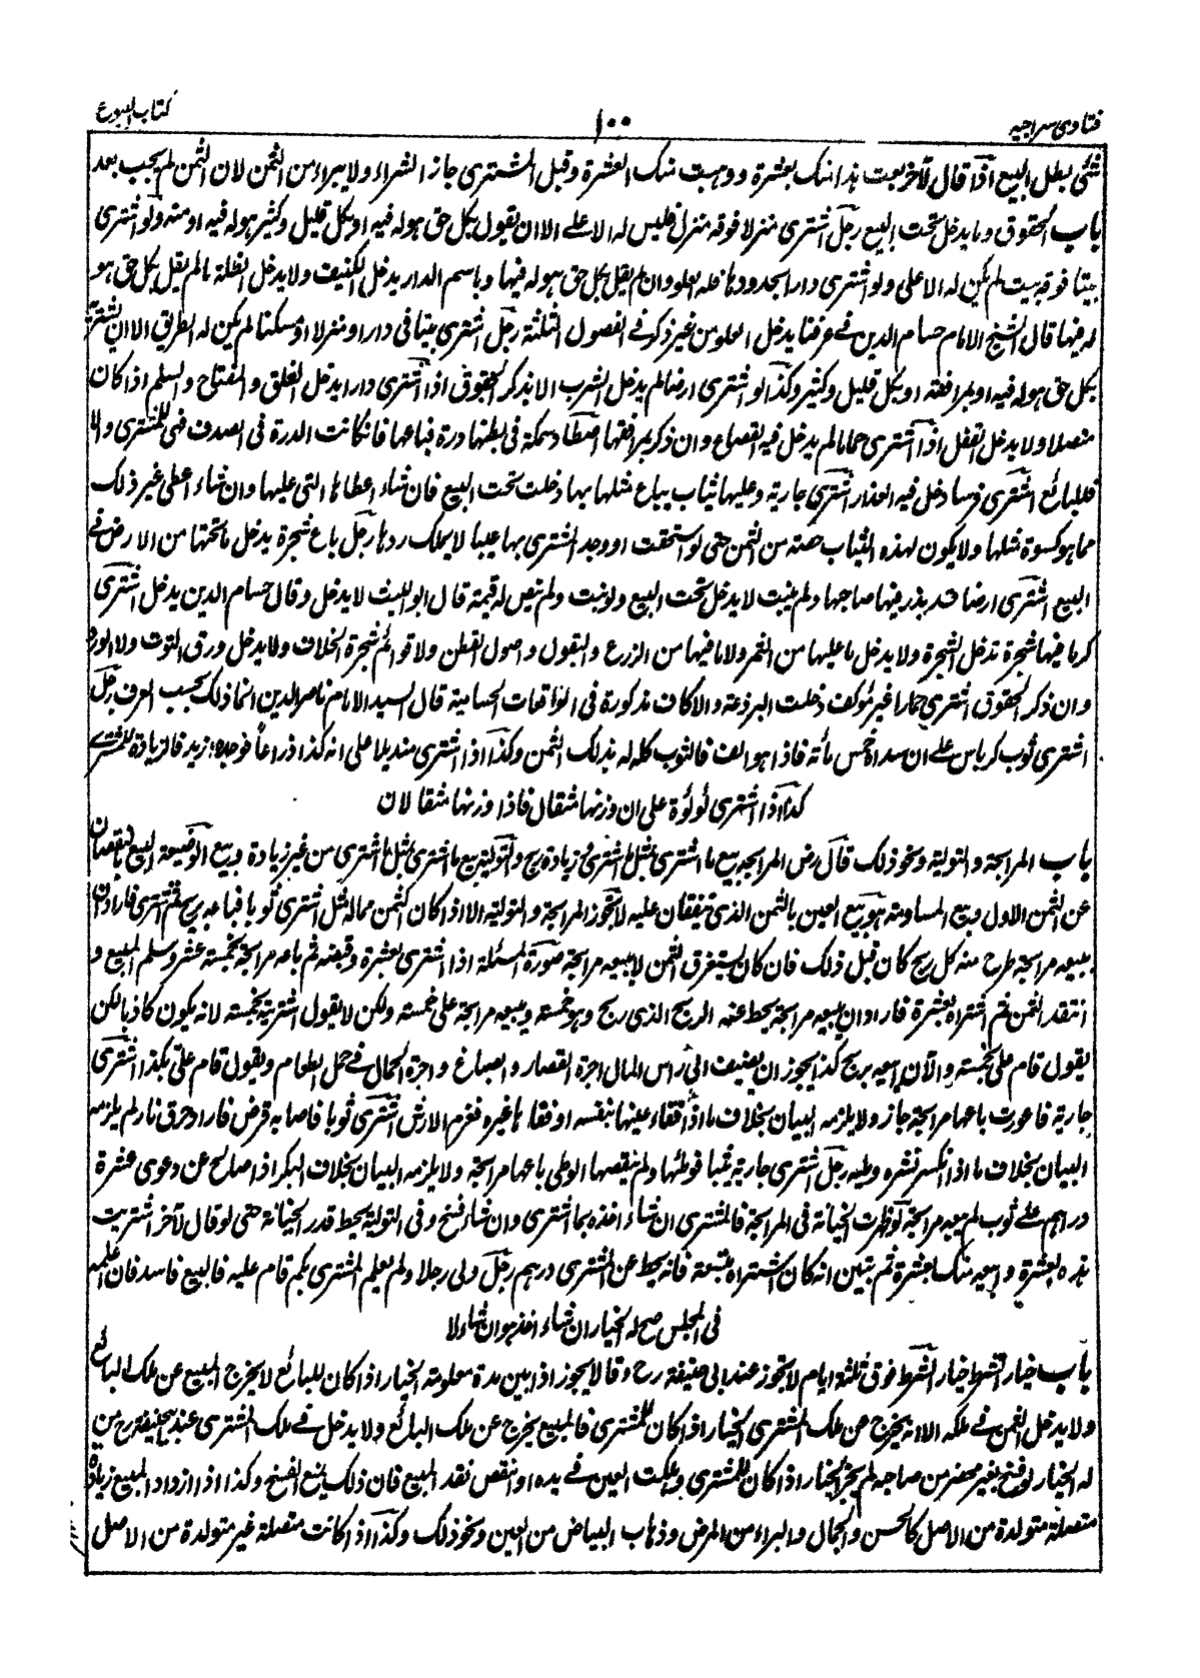 فتاوى سراجيه
١٠٠
كتاب البيوع
شئ بطل البيع اذا قال لآخر بعت هذا منك بعشرة ووهبت منك العشرة وقبل المشترى جاز الشراء ولا يبراء من الثمن لان الثمن لم يجب بعد
باب الحقوق وما يدخل تحت البيع رجل اشترى منزلا فوقه منزل فليس له الاعلى الا ان يقول بكل حق هو له فيه او بكل قليل وكثير هو له فيه او منه ولو اشترى
بيتا فوقه بيت لم يكن له الاعلى ولو اشترى دارا بحدودها فله العلو وان لم يقل بكل حق هو له فيها وباسم الدار يدخل الكنيف ولا يدخل الظلة ما لم يقل بكل حق هو
له فيها قال الشيخ الامام حسام الدين فى عرفنا يدخل العلو من غير ذكر فى الفصول الثلثة رجل اشترى بيتا فى دار او منزلا او مسكنا لم يكن له الطريق الا ان يشتريه
بكل حق هو له فيه او بمرافقه او بكل قليل وكثير وكذا لو اشترى ارضا لم يدخل الشرب الا بذكر الحقوق اذا اشترى دارا يدخل الغلق والمفتاح والسلم اذا كان
متصلا ولا يدخل القفل اذا اشترى حماما لم يدخل فيه القصاع وان ذكر بمرافقها اصطاد سمكة فى بطنها درة فباعها فان كانت الدرة فى الصدف فهى للمشترى والا
فللبائع اشترى فرسا دخل فيه العذار اشترى جارية وعليها ثياب يباع مثلها بها دخلت تحت البيع فان شاء اعطاها التى عليها وان شاء اعطى غير ذلك
مما هو كسوة مثلها ولا يكون لهذه الثياب حصة من الثمن حتى لو استحقت او وجد المشترى بها عيبا لا يملك ردها رجل باع شجرة يدخل ما تحتها من الارض فى
البيع اشترى ارضا قد بذر فيها صاحبها ولم ينبت لا يدخل تحت البيع ولو نبت ولم تصر له قيمة قال ابو الليث لا يدخل وقال حسام الدين يدخل اشترى
كرما فيها شجرة تدخل الشجرة ولا يدخل ما عليها من الثمر ولا ما فيها من الزرع والبقول واصول القطن ولا قوائم شجرة الخلاف ولا يدخل ورق التوت ولا الورد
وان ذكر الحقوق اشترى حمارا غير موكف دخلت البرذعة والاكاف مذكورة فى الواقعات الحسامية قال السيد الامام ناصر الدين انما ذلك بحسب العرف رجل
اشترى ثوب كرباس على ان سداه خمس مائة فاذا هو الف فالثوب كله له بذلك الثمن وكذا اذا اشترى منديلا على انه كذا ذراعاً فوجده ازيد فالزيادة للمشترى
كذا اذا اشترى لؤلؤة على ان وزنها مثقال فاذا وزنها مثقالان
باب المرابحة والتولية ونحو ذلك قال رض المرابحة بيع ما اشترى بمثل ما اشترى وزيادة ربح والتولية بيع ما اشترى بمثل ما اشترى من غير زيادة وبيع الوضيعة البيع بالنقصان
عن الثمن الاول وبيع المساومة هو بيع العين بالثمن الذى يتفقان عليه لا تجوز المرابحة والتولية الا اذا كان الثمن مما له مثل اشترى ثوبا فباعه بربح ثم اشترى فاراد ان
يبيعه مرابحة طرح منه كل ربح كان قبل ذلك فان كان يستغرق الثمن لا يبيعه مرابحة صورة المسئلة اذا اشترى بعشرة وقبضه ثم باعه مرابحة بخمسة عشر وسلم المبيع و
انتقد الثمن ثم اشتراه بعشرة فاراد ان يبيعه مرابحة يحط عنه الربح الذى ربح وهو خمسة ويبيعه مرابحة على خمسة ولكن لا يقول اشتريته بخمسة لانه يكون كاذبا لكن
يقول قام على بخمسة والآن ابيعه بربح كذا يجوز ان يضيف الى راس المال اجرة القصار والصباغ واجرة الحمال فى حمل الطعام ويقول قام على بكذا اشترى
جارية فاعورت باعها مرابحة جاز ولا يلزمه البيان بخلاف ما اذا فقاء عينها بنفسه او فقاءها غيره فغرم الارش اشترى ثوبا فاصابه قرض فار او حرق نار لم يلزمه
البيان بخلاف ما اذا انكسر بنشره وطيه رجل اشترى جارية ثيبا فوطئها ولم ينقصها الوطى باعها مرابحة ولا يلزمه البيان بخلاف البكر اذا صالح عن دعوى عشرة
دراهم على ثوب لم يبعه مرابحة لو ظهرت الخيانة فى المرابحة فالمشترى ان شاء اخذه بما اشترى وان شاء فسخ وفى التولية يحط قدر الخيانة حتى لو قال لآخر اشتريت
هذه بعشرة وابيعه منك بعشرة ثم تبين انه كان اشتراه بتسعة فانه يحط عن المشترى درهم رجل ولى رجلا ولم يعلم المشترى بكم قام عليه فالبيع فاسد فان اعلمه
فى المجلس صح له الخيار ان شاء اخذ هو ان شاء لا
باب خيار الشرط خيار الشرط فوق ثلثة ايام لا يجوز عند ابى حنيفة رح وقالا يجوز اذا بين مدة معلومة الخيار اذا كان للبائع لا يخرج المبيع عن ملك البائع
ولا يدخل الثمن فى ملكه الا انه يخرج عن ملك المشترى الخيار اذا كان للمشترى فالمبيع يخرج عن ملك البائع ولا يدخل فى ملك المشترى عند ابيحنيفة رح من
له الخيار لو فسخ بغير محضر من صاحبه لم يجز الخيار اذا كان للمشترى وهلكت العين فى يده او انتقص نقد المبيع فان ذلك يمنع الفسخ وكذا اذا ازداد المبيع زيادة
متصلة متولدة من الاصل كالحسن والجمال والبراء من المرض وذهاب البياض من العين ونحو ذلك وكذا اذا كانت متصلة غير متولدة من الاصل